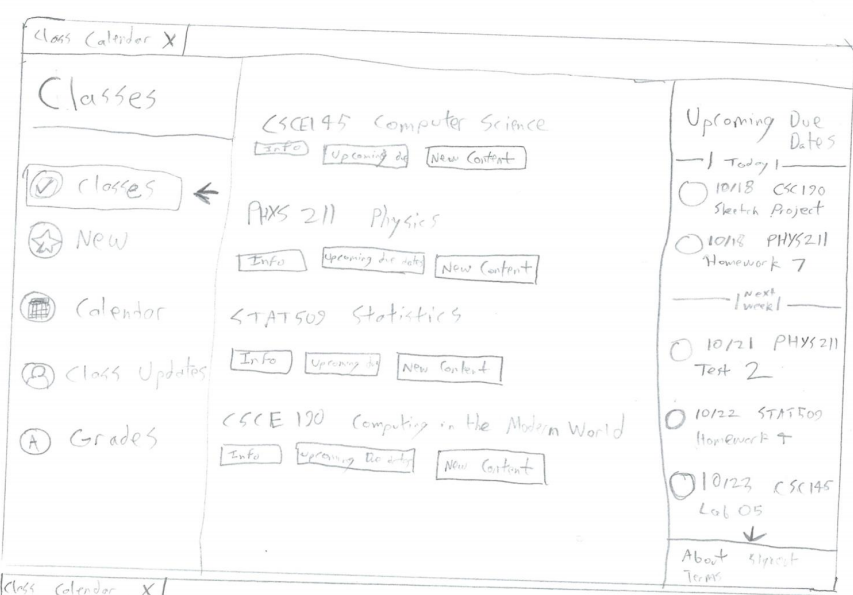 Class Calendar X
Classes
Classes
New
Calendar
Class Updates
A Grades
CSCE145 Computer Science
Info Upcoming du New Content
PHYS 211 Physics
Info Upcoming due dates New Content
STAT509 Statistics
Info Upcoming du New Content
CSCE 190 Computing in the Modern World
Info Upcoming Due dates New Content
Upcoming Due
Dates
Today
10/18 CSC190
Sketch Project
10/18 PHYS211
Homework 7
Next
week
10/21 PHYS211
Test 2
10/22 STAT509
Homework 4
10/23 CSC145
Lab 05
About Signout
Terms
Class Calendar X